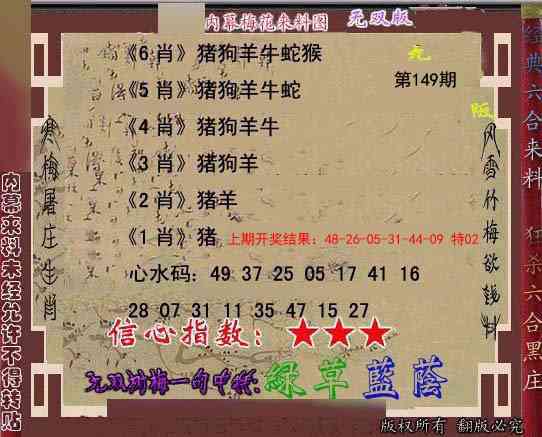 内幕梅花来料图 无双版
《6 肖》猪狗羊牛蛇猴
无
第149期
《5 肖》猪狗羊牛蛇
版
《4 肖》猪狗羊牛
《3 肖》猪狗羊
《2 肖》猪羊
《1 肖》猪 上期开奖结果：48-26-05-31-44-09 特02
心水码：49 37 25 05 17 41 16
28 07 31 11 35 47 15 27
信心指数：★★★
无双娴梅一句中特:绿草蓝荫
寒梅屠庄生肖
风雪竹梅欲钱料
内幕来料未经允许不得转贴
经典六合来料 狂杀六合黑庄
版权所有 翻版必究